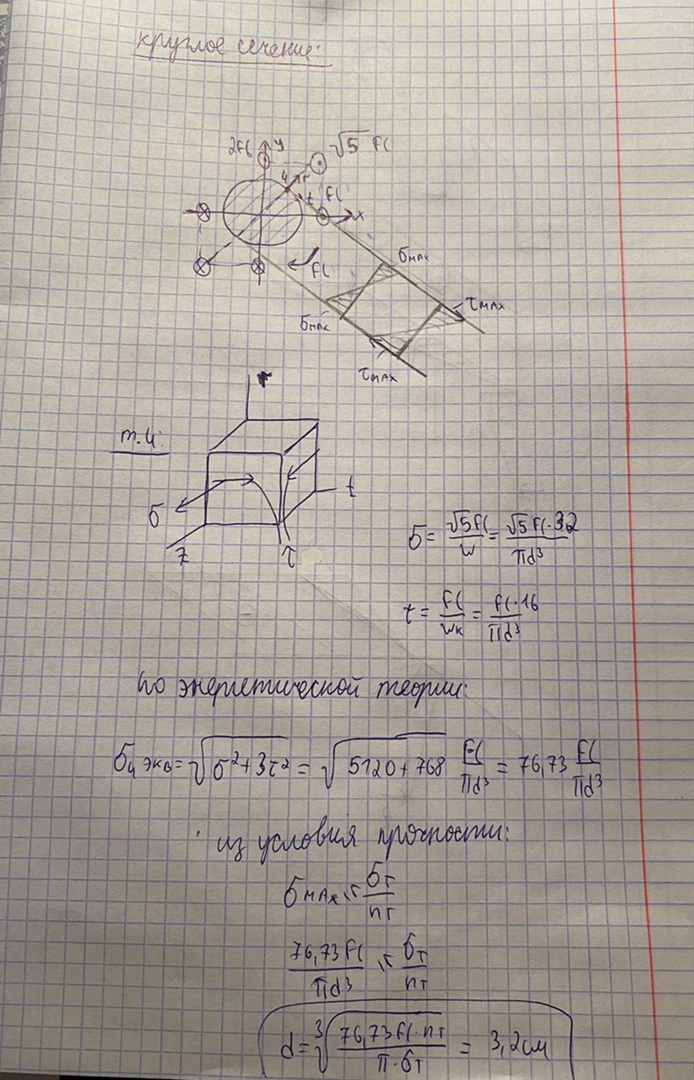 круглое сечение:
2Fl y √5 Fl
4 r
t Fl
x
Fl
σмах
τмах
σмах
τмах
r
т.4:
t
σ
z τ
σ = √5Fl/W = √5Fl·32/πd³
τ = Fl/Wк = Fl·16/πd³
по энергетической теории:
σ4 экв = √σ²+3τ² = √5120+768 Fl/πd³ = 76,73 Fl/πd³
из условия прочности:
σмах ≤ σт/nт
76,73Fl/πd³ ≤ σт/nт
d = ³√76,73Fl·nт/π·σт = 3,2см